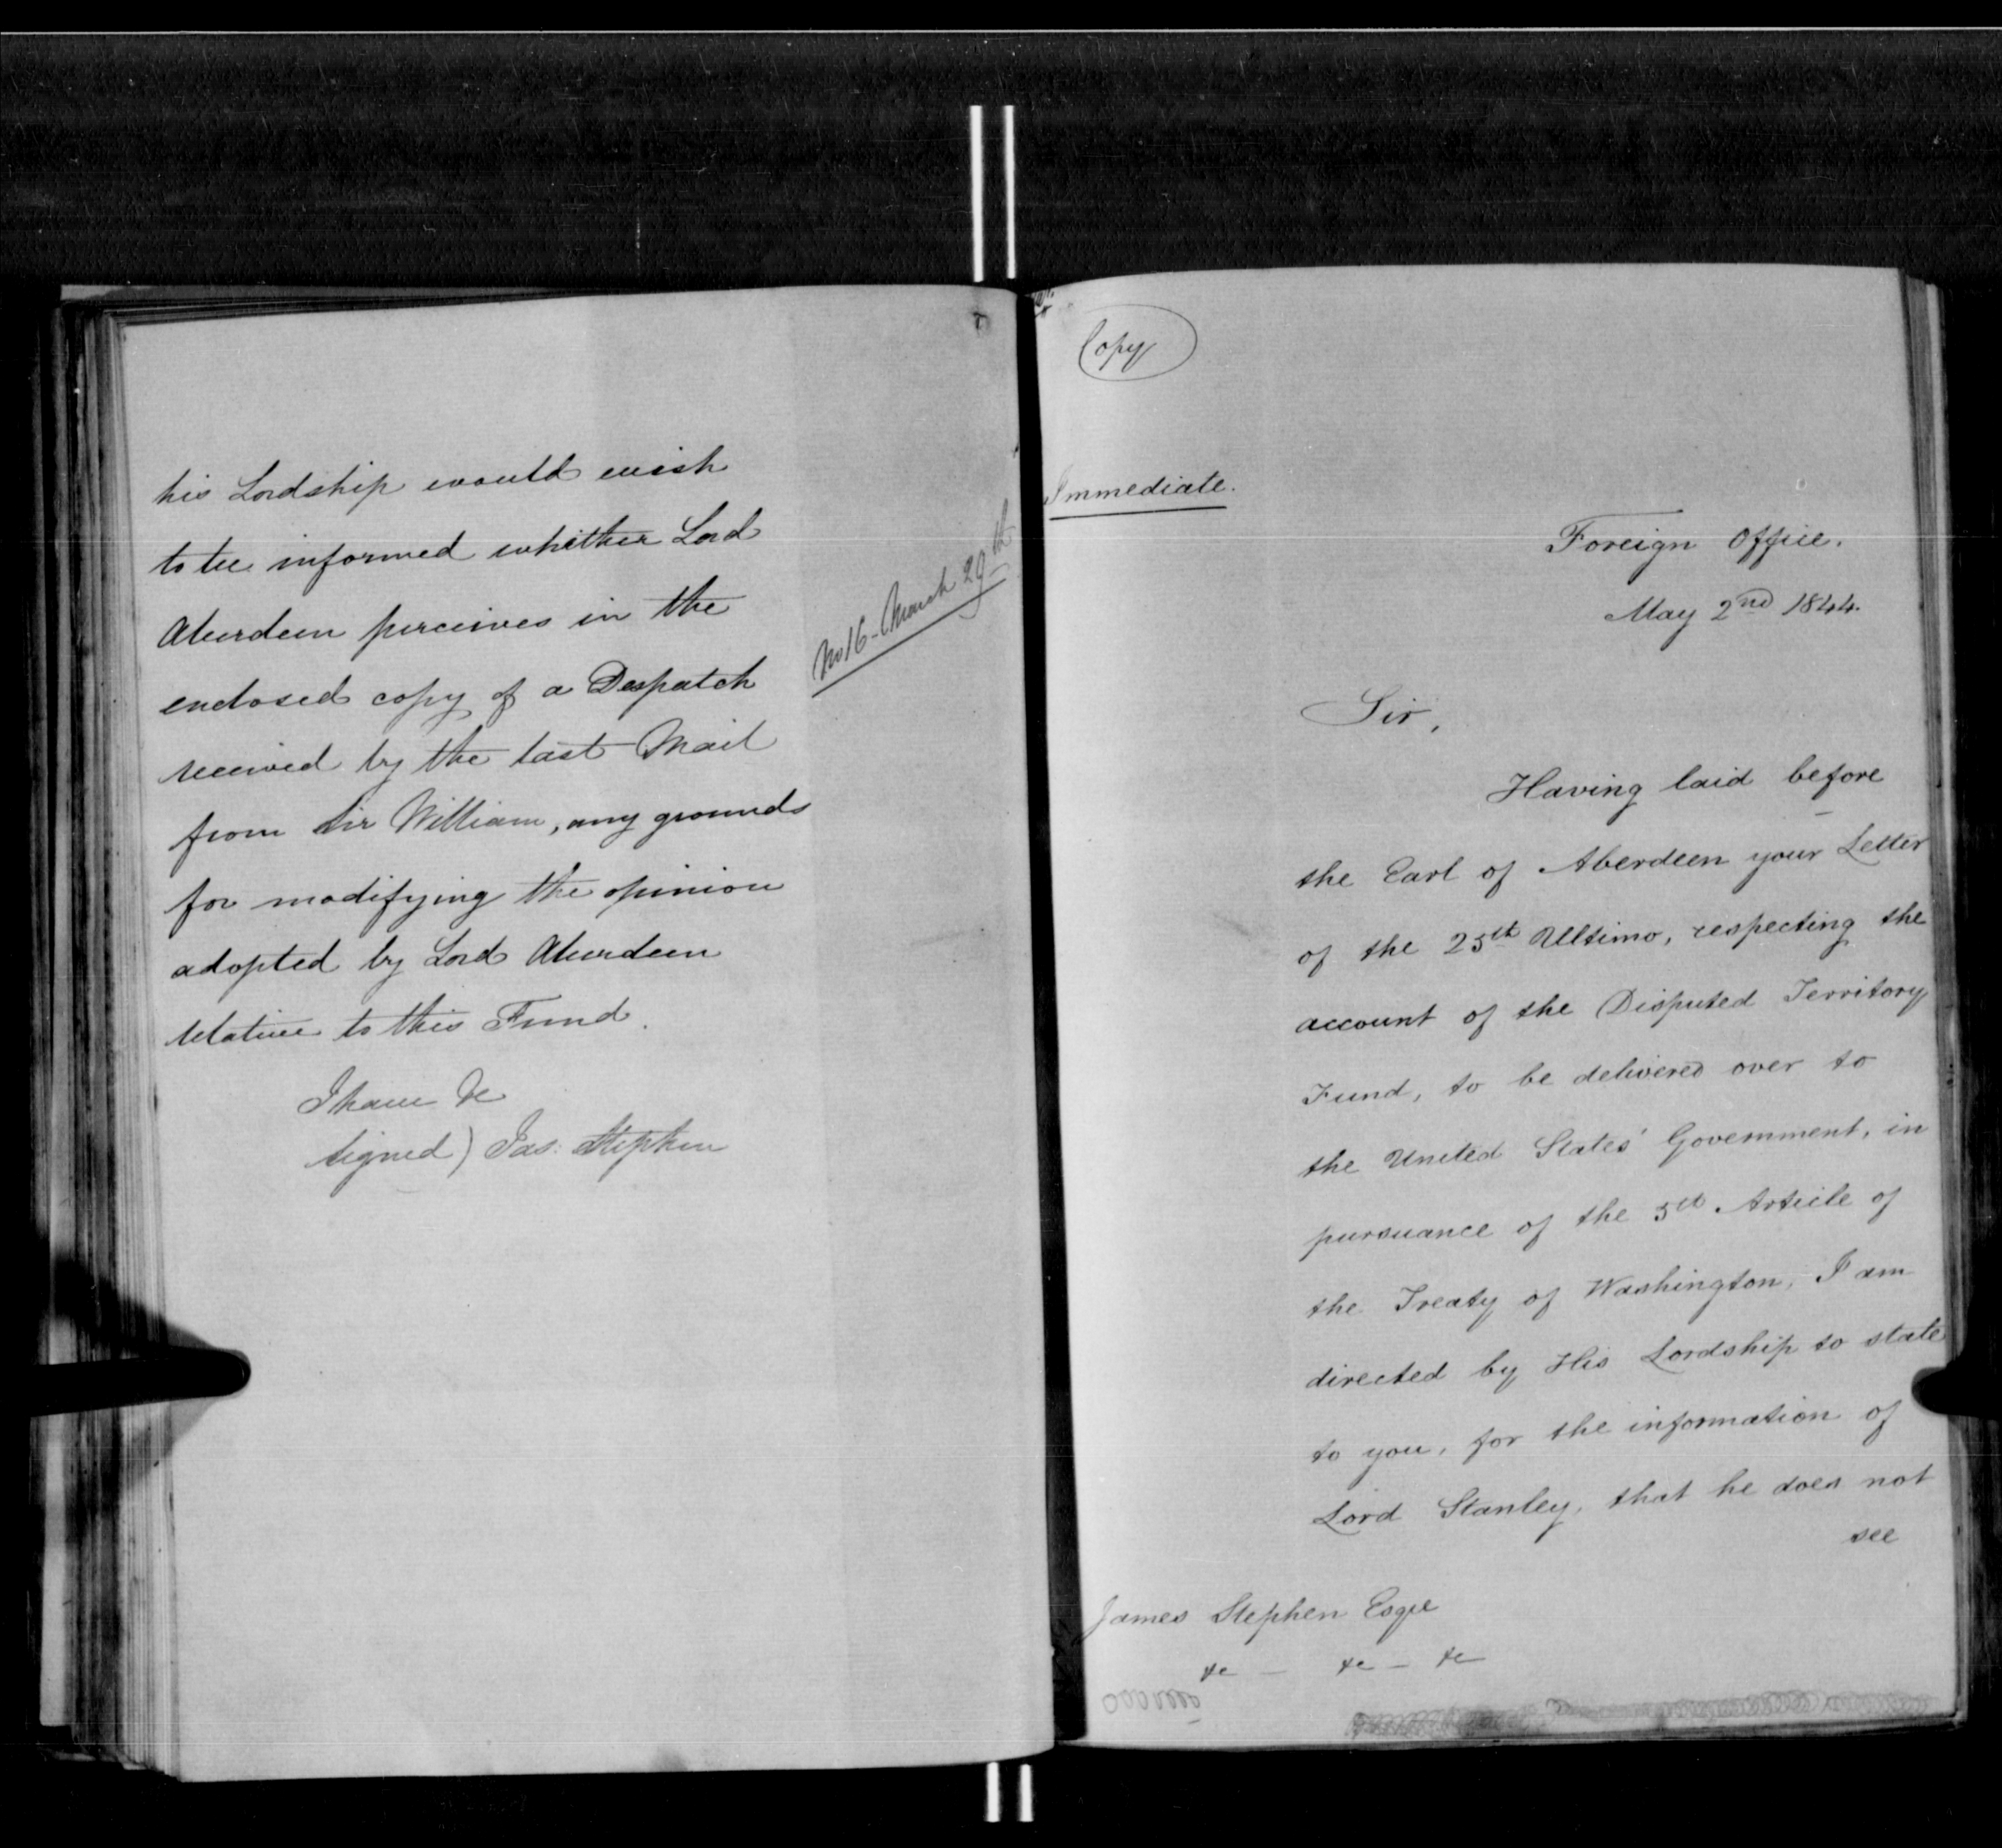 his Lordship would wish
to be informed whether Lord
Aberdeen perceives in the
enclosed copy of a Despatch
received by the last Mail
from Sir William, any grounds
for modifying the opinion
adopted by Lord Aberdeen
relative to this Fund.
I have &c
signed) Jas: Stephen
No 16 - March 29th
Copy
Immediate.
Foreign Office.
May 2nd 1844.
Sir,
Having laid before
the Earl of Aberdeen your Letter
of the 25th Ultimo, respecting the
account of the Disputed Territory
Fund, to be delivered over to
the United States' Government, in
pursuance of the 5th Article of
the Treaty of Washington, I am
directed by His Lordship to state
to you, for the information of
Lord Stanley, that he does not
see
James Stephen Esqre
&c - &c - &c